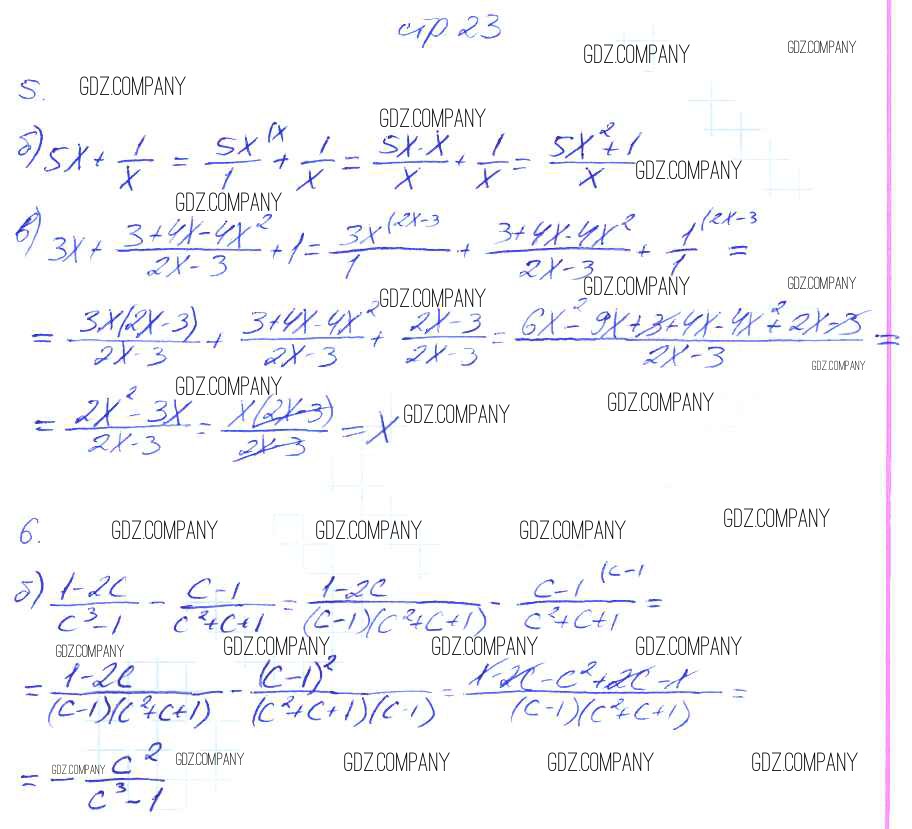 стр 23
GDZ.COMPANY GDZ.COMPANY
5. GDZ.COMPANY
GDZ.COMPANY
б) 5x + 1/x = 5x/1 (x + 1/x = 5x·x/x + 1/x = (5x²+1)/x GDZ.COMPANY
GDZ.COMPANY
в) 3x + (3+4x-4x²)/(2x-3) + 1 = 3x/1 (2x-3 + (3+4x-4x²)/(2x-3) + 1/1 (2x-3 =
GDZ.COMPANY GDZ.COMPANY GDZ.COMPANY
= 3x(2x-3)/(2x-3) + (3+4x-4x²)/(2x-3) + (2x-3)/(2x-3) = (6x²-9x+3+4x-4x²+2x-3)/(2x-3) =
GDZ.COMPANY
GDZ.COMPANY
= (2x²-3x)/(2x-3) = x(2x-3)/(2x-3) = x GDZ.COMPANY GDZ.COMPANY
6. GDZ.COMPANY GDZ.COMPANY GDZ.COMPANY GDZ.COMPANY
б) (1-2c)/(c³-1) - (c-1)/(c²+c+1) = (1-2c)/((c-1)(c²+c+1)) - (c-1)/(c²+c+1) (c-1 =
GDZ.COMPANY GDZ.COMPANY GDZ.COMPANY GDZ.COMPANY
= (1-2c)/((c-1)(c²+c+1)) - (c-1)²/((c²+c+1)(c-1)) = (1-2c-c²+2c-1)/((c-1)(c²+c+1)) =
= - c²/(c³-1)
GDZ.COMPANY GDZ.COMPANY GDZ.COMPANY GDZ.COMPANY GDZ.COMPANY